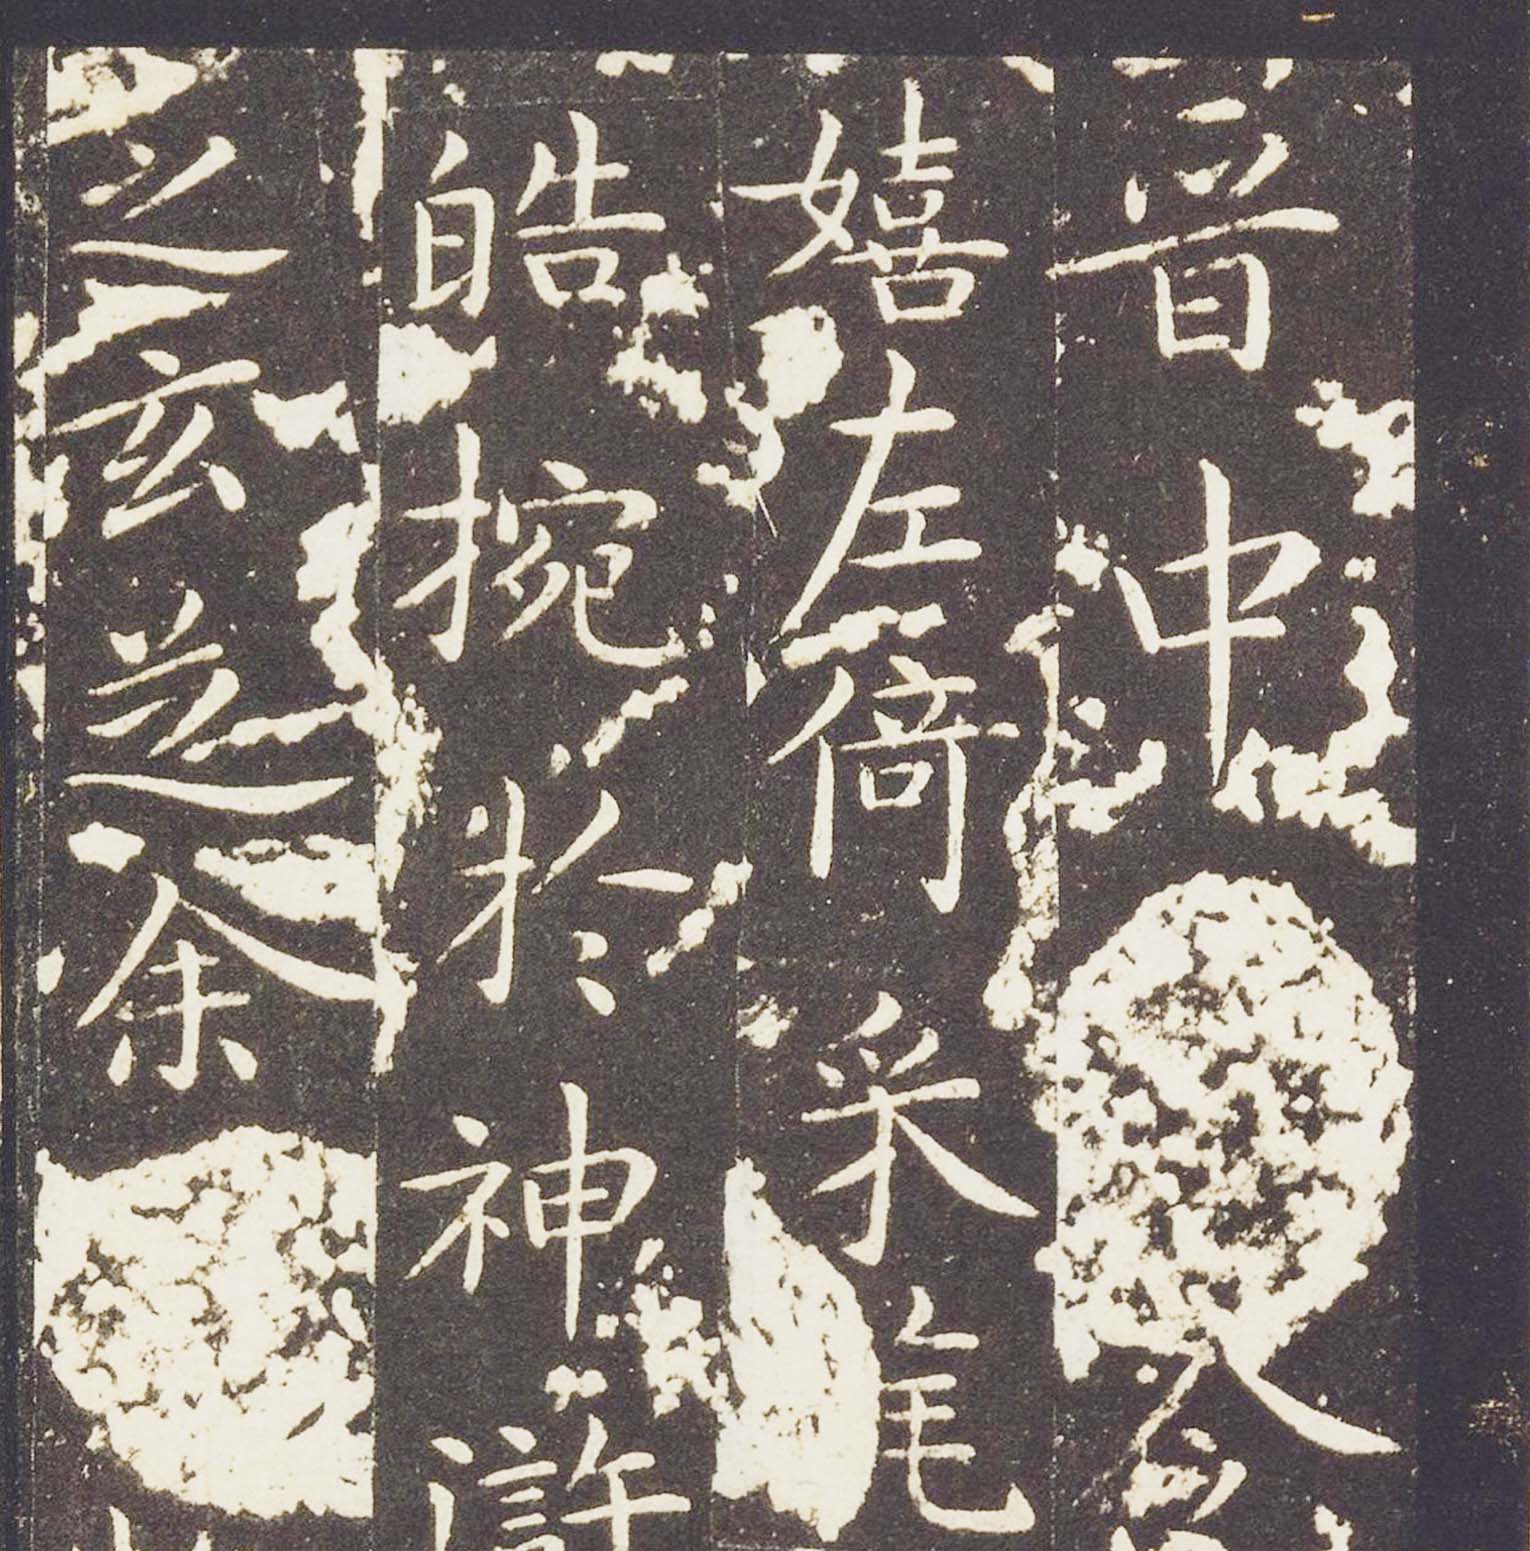 晉中令
嬉左倚采旄
皓捥於神滸
之玄芝余